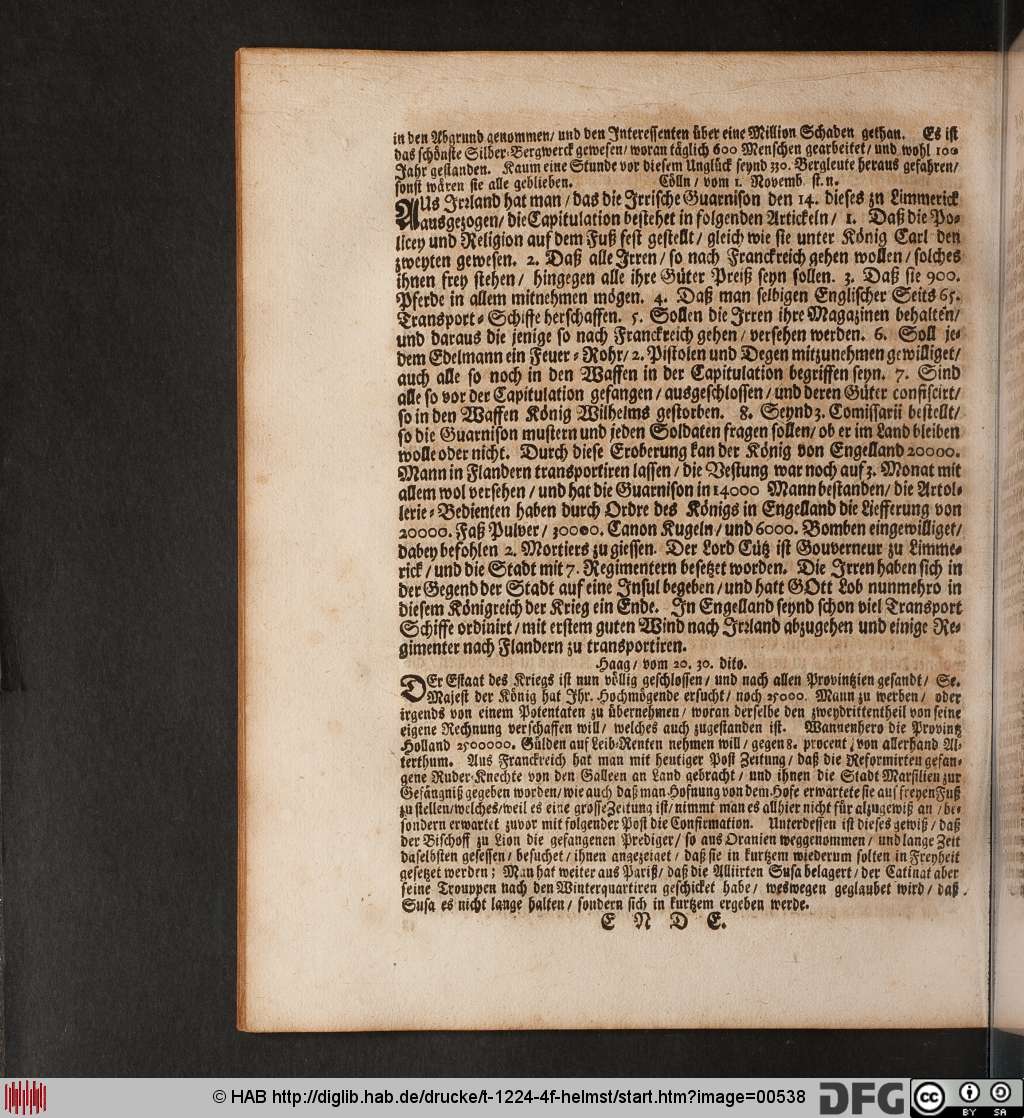 in den Abgrund genommen/ und den Interessenten über eine Million Schaden gethan. Es ist
das schönste Silber-Bergwerck gewesen/ woran täglich 600 Menschen gearbeitet/ und wohl 100
Jahr gestanden. Kaum eine Stunde vor diesem Unglück seynd 330. Bergleute heraus gefahren/
sonst wären sie alle geblieben. Cölln/ vom 1. Novemb. st. n.
AUs Irrland hat man/ das die Irrische Guarnison den 14. dieses zu Limmerick
ausgezogen/ die Capitulation bestehet in folgenden Artickeln/ 1. Daß die Po-
licey und Religion auf dem Fuß fest gestellt/ gleich wie sie unter König Carl den
zweyten gewesen. 2. Daß alle Irren/ so nach Franckreich gehen wollen/ solches
ihnen frey stehen/ hingegen alle ihre Güter Preiß seyn sollen. 3. Daß sie 900.
Pferde in allem mitnehmen mögen. 4. Daß man selbigen Englischer Seits 65.
Transport-Schiffe herschaffen. 5. Sollen die Irren ihre Magazinen behalten/
und daraus die jenige so nach Franckreich gehen/ versehen werden. 6. Soll je-
dem Edelmann ein Feuer-Rohr/ 2. Pistolen und Degen mitzunehmen gewilliget/
auch alle so noch in den Waffen in der Capitulation begriffen seyn. 7. Sind
alle so vor der Capitulation gefangen/ ausgeschlossen/ und deren Güter confiscirt/
so in den Waffen König Wilhelms gestorben. 8. Seynd 3. Comissarii bestellt/
so die Guarnison mustern und jeden Soldaten fragen sollen/ ob er im Land bleiben
wolle oder nicht. Durch diese Eroberung kan der König von Engelland 20000.
Mann in Flandern transportiren lassen/ die Vestung war noch auf 3. Monat mit
allem wol versehen/ und hat die Guarnison in 14000 Mann bestanden/ die Artol-
lerie-Bedienten haben durch Ordre des Königs in Engelland die Liefferung von
20000. Faß Pulver/ 30000. Canon Kugeln/ und 6000. Bomben eingewilliget/
dabey befohlen 2. Mortiers zu giessen. Der Lord Cütz ist Gouverneur zu Limme-
rick/ und die Stadt mit 7. Regimentern besetzet worden. Die Irren haben sich in
der Gegend der Stadt auf eine Insul begeben/ und hatt GOtt Lob nunmehro in
diesem Königreich der Krieg ein Ende. In Engelland seynd schon viel Transport
Schiffe ordinirt/ mit erstem guten Wind nach Irrland abzugehen und einige Re-
gimenter nach Flandern zu transportiren.
Haag/ vom 20. 30. dito.
DEr Estaat des Kriegs ist nun völlig geschlossen/ und nach allen Provintzien gesandt/ Se.
Majest der König hat Ihr. Hochmögende ersucht/ noch 25000. Mann zu werben/ oder
irgends von einem Potentaten zu übernehmen/ woran derselbe den zweydrittentheil von seine
eigene Rechnung verschaffen will/ welches auch zugestanden ist. Wannenhero die Provintz
Holland 2500000. Gülden auf Leib-Renten nehmen will/ gegen 8. procent/ von allerhand Al-
terthum. Aus Franckreich hat man mit heutiger Post Zeitung/ daß die Reformirten gefan-
gene Ruder-Knechte von den Galleen an Land gebracht/ und ihnen die Stadt Marsilien zur
Gefängniß gegeben worden/ wie auch daß man Hofnung von dem Hofe erwartete sie auf freyen Fuß
zu stellen/ welches/ weil es eine grosse Zeitung ist/ nimmt man es allhier nicht für alzugewiß an/ be-
sondern erwartet zuvor mit folgender Post die Confirmation. Unterdessen ist dieses gewiß/ daß
der Bischoff zu Lion die gefangenen Prediger/ so aus Oranien weggenommen/ und lange Zeit
daselbsten gesessen/ besuchet/ ihnen angezeiget/ daß sie in kurtzem wiederum solten in Freyheit
gesetzet werden; Man hat weiter aus Pariß/ daß die Alliirten Susa belagert/ der Catinat aber
seine Trouppen nach den Winterquartiren geschicket habe/ weswegen geglaubet wird/ daß
Susa es nicht lange halten/ sondern sich in kurtzem ergeben werde.
E N D E.
© HAB http://diglib.hab.de/drucke/t-1224-4f-helmst/start.htm?image=00538
DFG
cc
BY SA